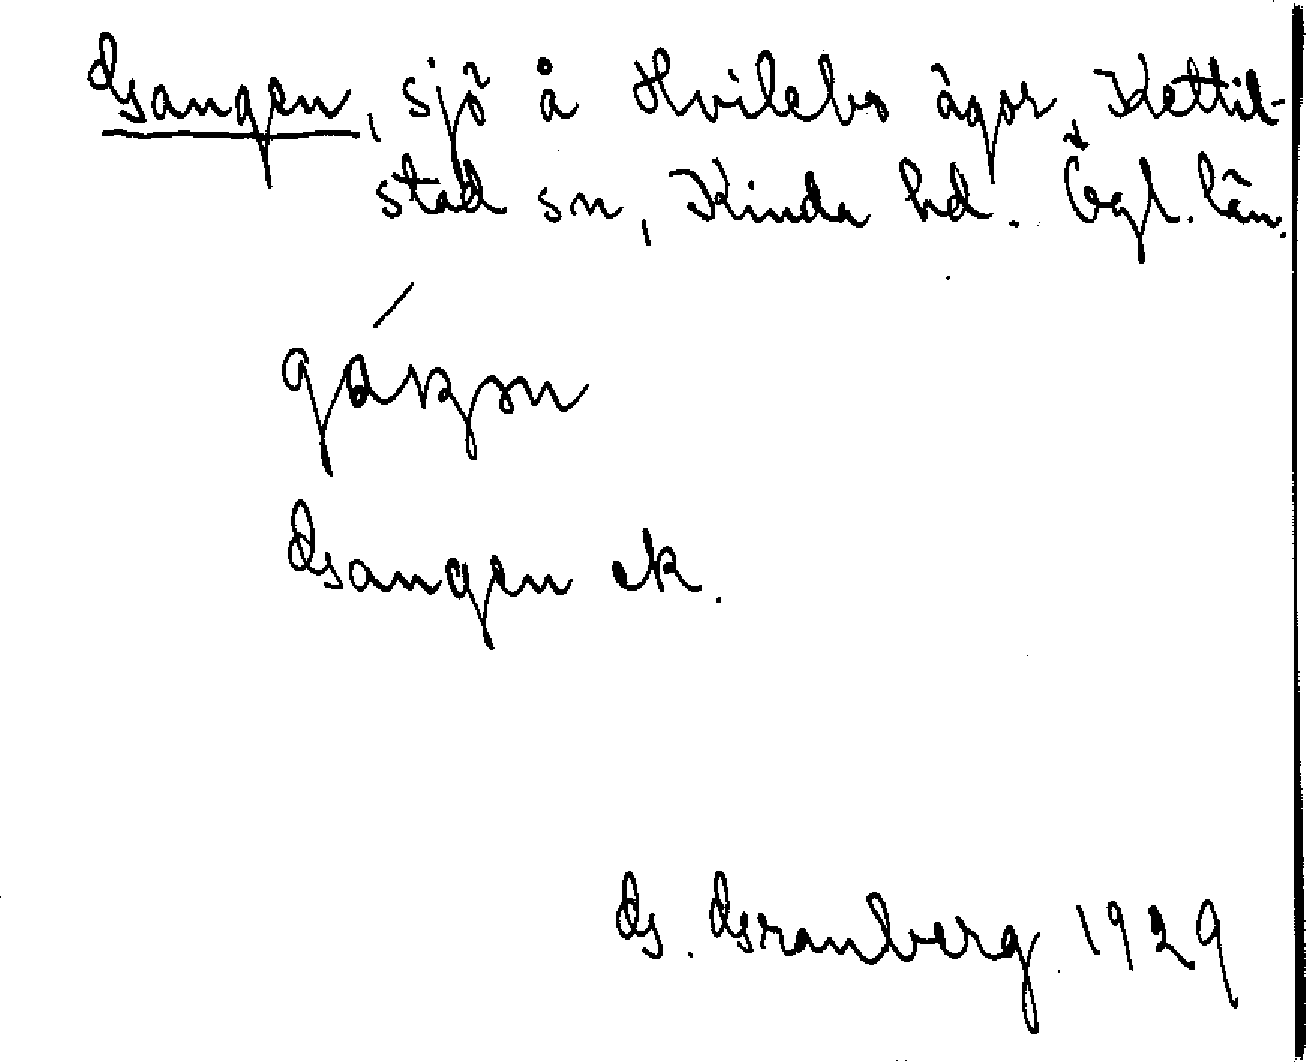 Gangen, sjö å Hvilebo ägor, Kettil-
stad sn, Kinda hd. Ögl. län.
Gangen ek.
G. Granberg 1929